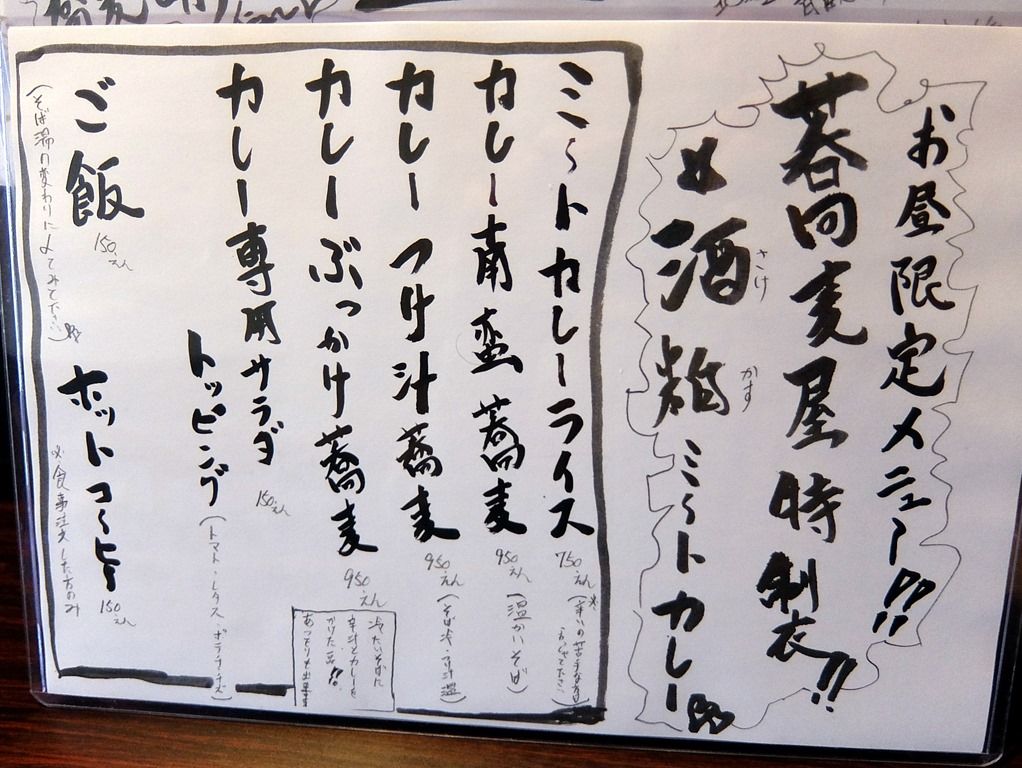 お昼限定メニュー!!
蕎麦屋特製!!
酒粕ミートカレー
さけ
かす
ミートカレーライス
750えん
カレー南蛮蕎麦
950えん
(温かいそば)
カレーつけ汁蕎麦
950えん
(そば冷・つけ汁温)
カレーぶっかけ蕎麦
950えん
冷たいそばに
辛汁とカレーを
かけた一品!!
あつもりも出来ます
カレー専用サラダ
150えん
トッピング
(トマト・レタス・
ご飯
150えん
(そば湯の変わりに
ホットコーヒー
150えん
※食事注文した方のみ